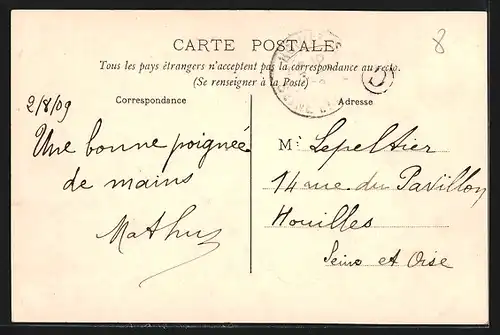 CARTE POSTALE
Tous les pays étrangers n'acceptent pas la correspondance au recto.
(Se renseigner à la Poste)
8
D
Correspondance
2/8/09
Une bonne poignée
de mains
Mathus
Adresse
Mr Lepeltier
14 rue du Pavillon
Houilles
Seine et Oise